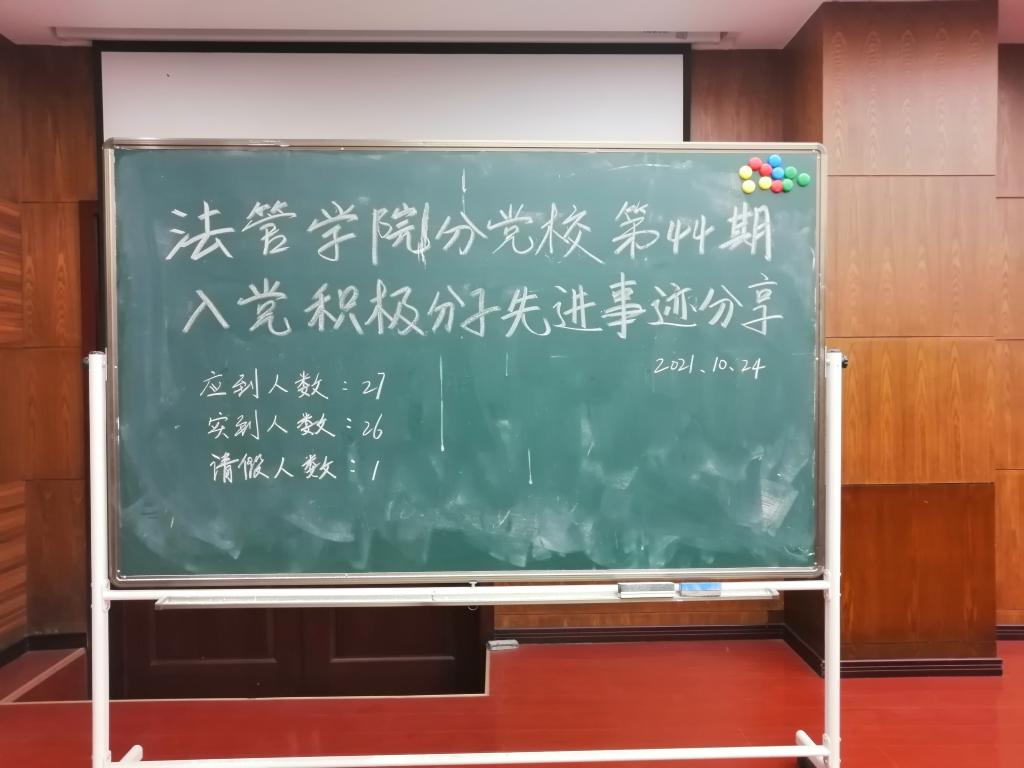 法管学院分党校第44期
入党积极分子先进事迹分享
2021.10.24
应到人数：27
实到人数：26
请假人数：1